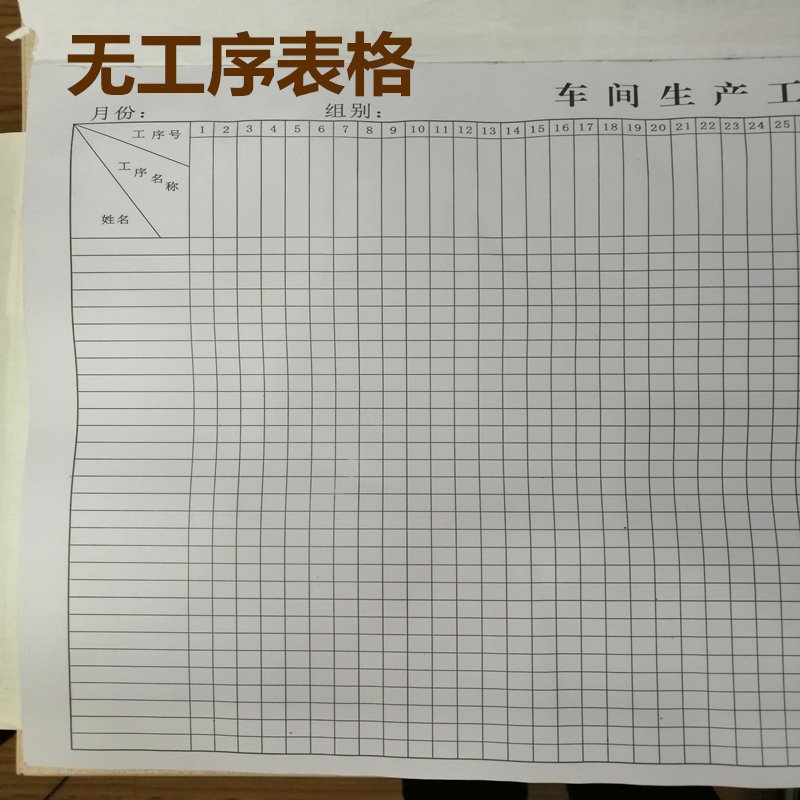 无工序表格
车间生产工
月份： 组别：
工序号 1 2 3 4 5 6 7 8 9 10 11 12 13 14 15 16 17 18 19 20 21 22 23 24 25
工序名称
姓名